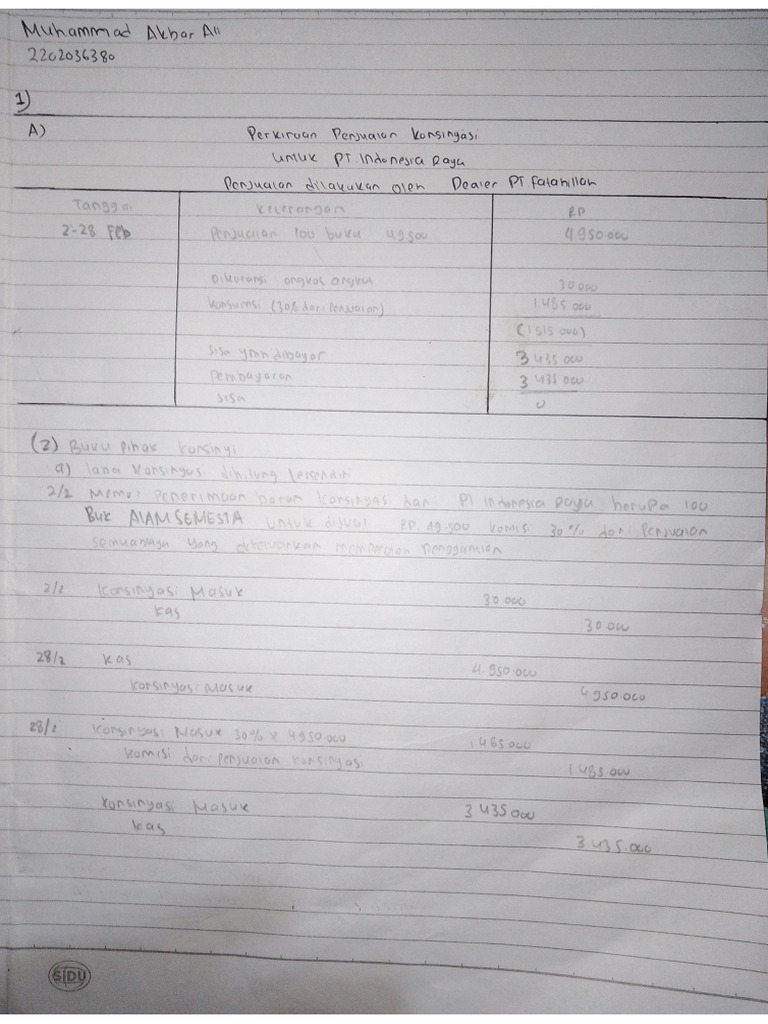 Muhammad Akbar Ali
2202036380
1)
A) Perkiraan Penjualan Konsingasi
untuk PT. Indonesia Raya
Penjualan dilakukan oleh Dealer PT Falahillah
Tanggal Keterangan RP
2-28 Feb Penjualan 100 buku 49500 4.950.000
Dikurangi ongkos angkut 30000
Konsumsi (30% dari Penjualan) 1.485.000
(1515.000)
Sisa yang dibayar 3 435 000
Pembayaran 3 435 000
Sisa 0
(2) Buku Pihak Konsinyi
a) laba Konsingasi dihitung tersendiri
2/2 Memo: Penerimaan baran Konsingasi dari PT Indonesia Raya berupa 100
Buk ALAM SEMESTA untuk dijual RP. 49.500 komisi 30% dari Penjualan
semuanya yang dikeluarkan
2/2 Konsinyasi Masuk 30.000
Kas 30 000
28/2 Kas 4.950.000
Konsinyasi Masuk 4950.000
28/2 Konsinyasi Masuk 30% x 4950.000 1.485000
Komisi dari penjualan konsinyasi 1.485.000
Konsinyasi Masuk 3 435000
Kas 3 435.000
SIDU